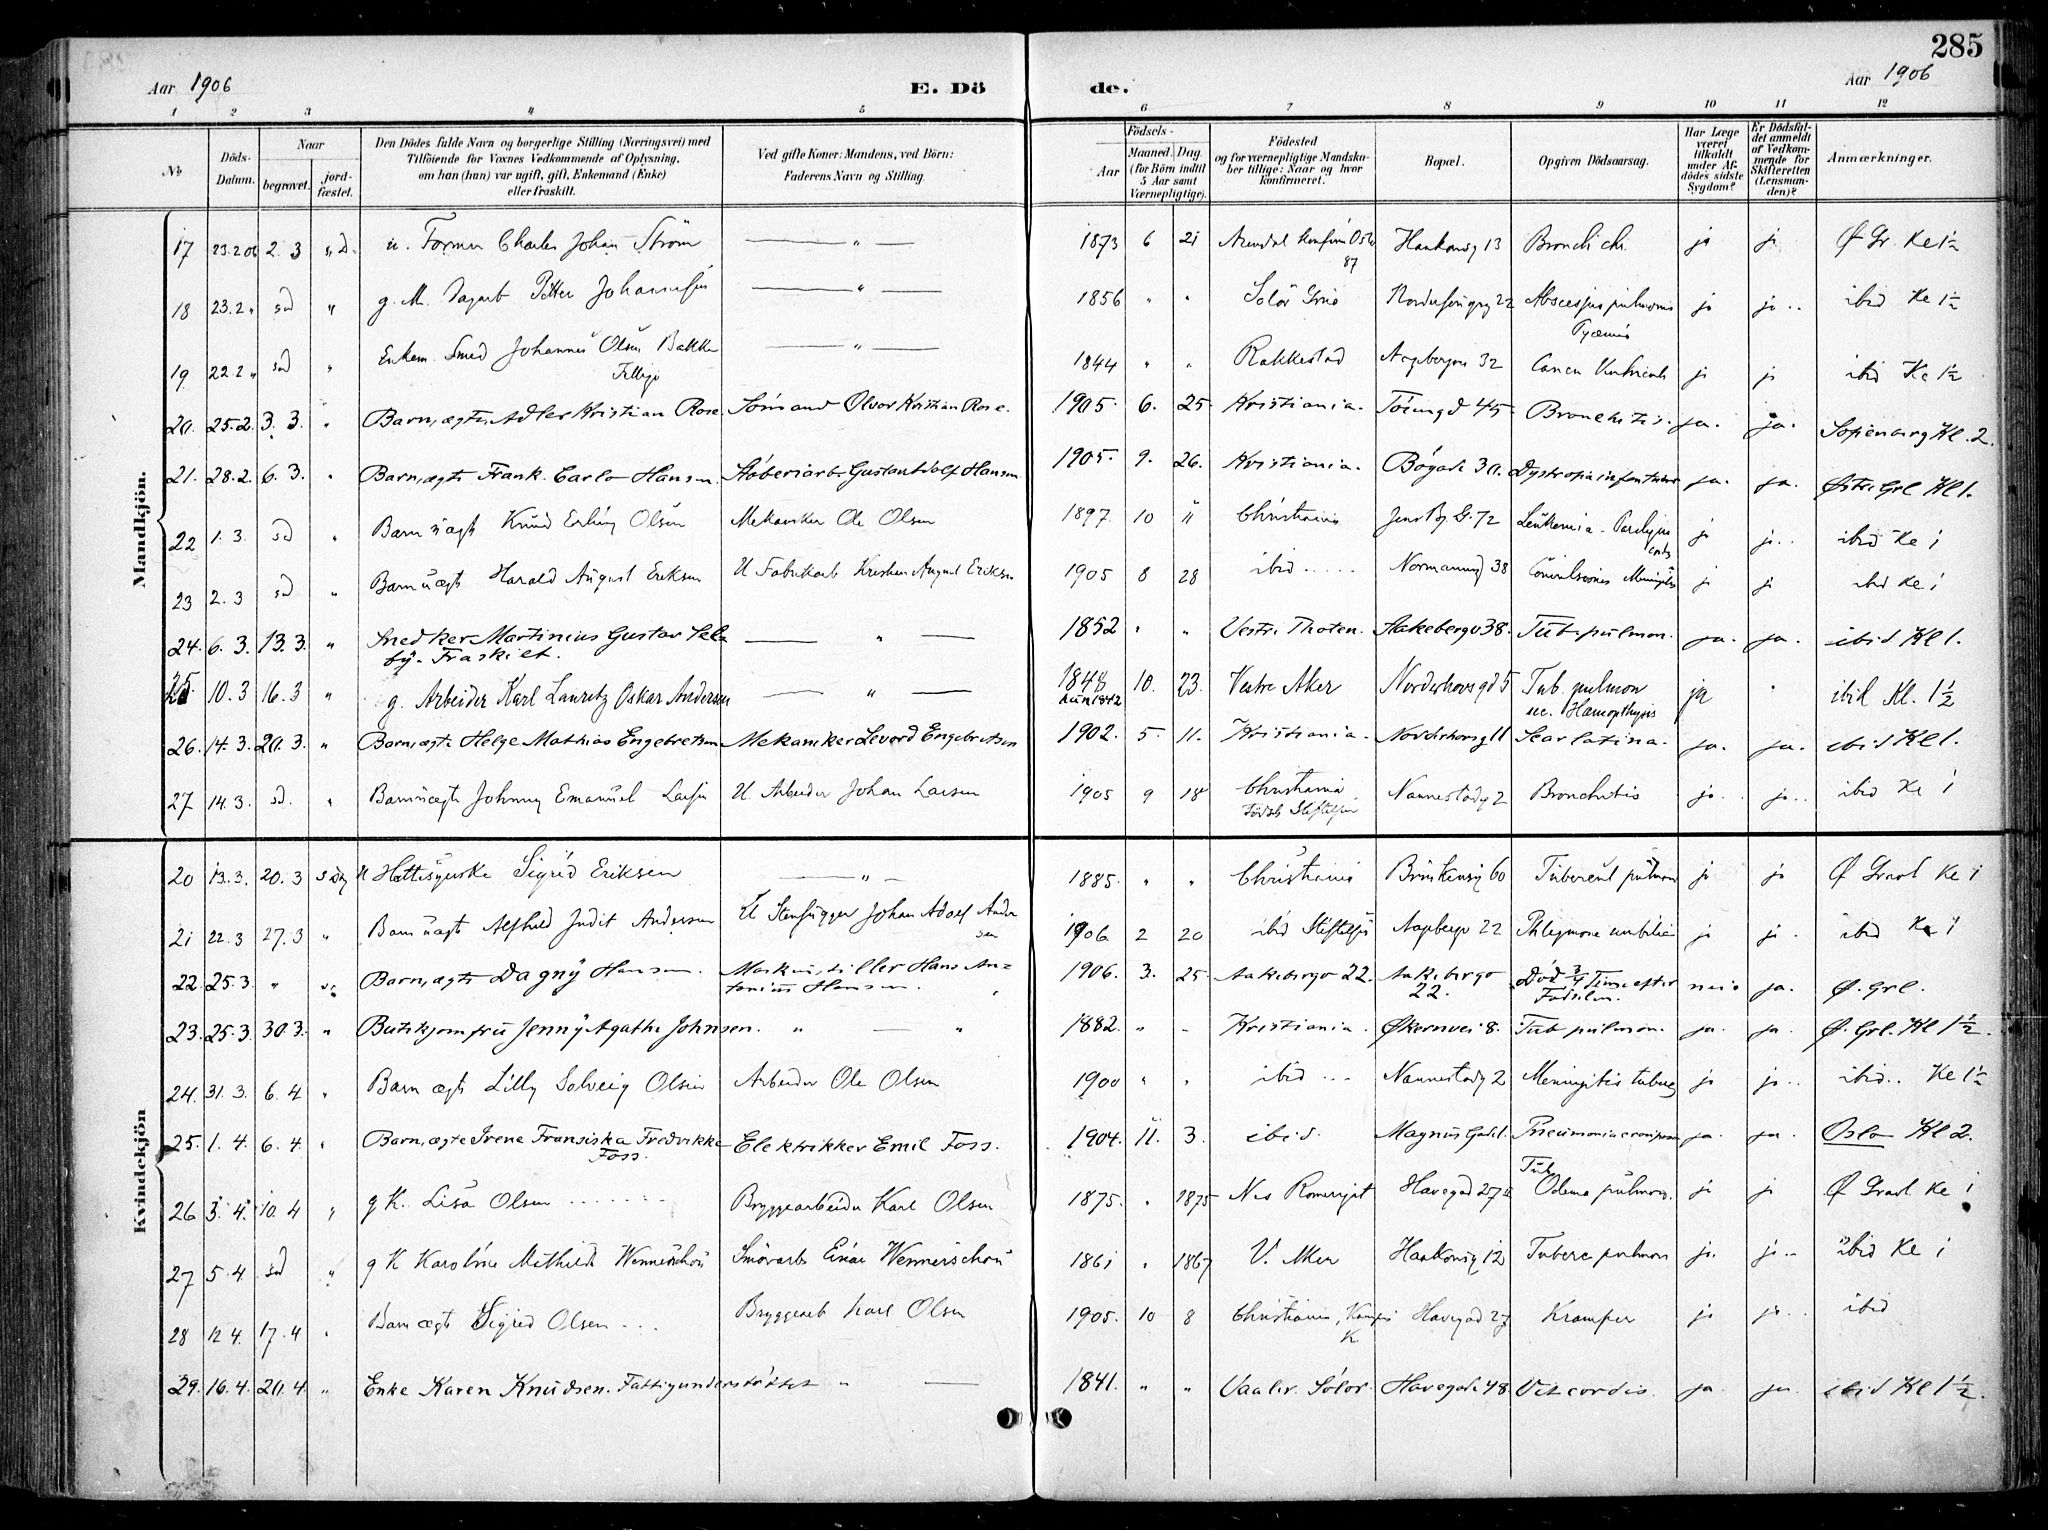 285
Aar 1906
E. Dö
de.
Aar 1906
1 2 3 4 5 6 7 8 9 10 11 12
No
Döds-Datum.
Naar
begravet.
jord-fæstet.
Den Dödes fulde Navn og borgerlige Stilling (Næringsvei) med
Tilföiende for Voxnes Vedkommende af Oplysning,
om han (hun) var ugift, gift, Enkemand (Enke)
eller fraskilt.
Ved gifte Koner: Mandens, ved Börn:
Faderens Navn og Stilling.
Födsels-
Aar
Maaned.
Dag.
(for Börn indtil
5 Aar samt
Værnepligtige).
Födested
og for værnepligtige Mandska-
ber tillige: Naar og hvor
konfirmeret.
Bopæl.
Opgiven Dödsaarsag.
Har Læge
været
tilkaldt
under Af-
dödes sidste
Sygdom?
Er Dödsfal-
det anmeldt
af Vedkom-
mende for
Skifteretten
(Lensman-
den)?
Anmærkninger.
Mandkjön.
17 23.2.06 2.3 s.D. u. Former Charles Johan Ström — " — 1873 6 21 Arendal Konfirm Oslo 87 Haukonsg 13 Bronch chr. ja ja Ø Gr. Kl 1½
18 23.2 " sd " g. M. Dagarb Petter Johannesen — " — 1856 " " Solör Grue 22 Abscessus pulmonis Pyæmie ja ja ibid Kl 1½
19 22.2 " sd " Enkem. Smed Johannes Olsen Bakke — " — 1844 " " Rakkestad 32 Cancer Ventriculi ja ja ibid Kl 1½
20. 25.2. 3.3. " Barn, ægte Adler Kristian Rose. Sömand Olvor Kristian Rose. 1905. 6. 25. Kristiania. Töiengd 45. Bronchitis. ja. ja. Sofienberg Kl. 2.
21. 28.2. 6.3. " Barn, ægte Frank Carlo Hansen. Stöberiarb. Gustav Adolf Hansen 1905. 9. 26. Kristiania. Bögade 30. Dystrophia infantum ja. ja. Østre Grl Kl 1.
22 1.3. sd " Barn uægte Knud Erling Olsen Mekaniker Ole Olsen 1897. 10 11 Christiania Jens Bj. G. 72 Leukemia - Paralysis cordis ja ja ibid Kl 1
23 2.3 sd " Barn uægt Harald August Eriksen U Fabrikarb. Kristian August Eriksen 1905 8 28 ibid Normannsg 38 Convulsiones Meningitis ja ja ibid Kl 1
24. 6.3. 13.3. " Snedker Martinius Gustav Sele-
by. Fraskilt. — " — 1852 " " Vestre Thoten. Aakebergv 38. Tub. pulmon. ja. ja. ibid Kl 1.
25 10.3 16.3 " g. Arbeider Karl Lauritz Oskar Andersen — " — 1848 10. 23. Vestre Aker Norderhovsgd 5 Tub. pulmon
sec. Hæmopthysis ja " ibid Kl. 1½
26. 14.3. 20.3. " Barn, ægte Helge Mathias Engebretsen Mekaniker Severd Engebretsen 1902. 5. 11. Kristiania. Norderhovsg 11 Scarlatina. ja. ja. ibid Kl 1.
27 14.3. sd. " Barn uægte Johnny Emanuel Larsen U. Arbeider Johan Larsen 1905 9 18 Christiania Föds Stiftelsen Nannestadg 2 Bronchitis ja ja ibid Kl 1
Kvindekjön
20 13.3. 20.3 s Dag U Hattesyerske Sigrid Eriksen — " — 1885. " " Christiania 60 Tubercul pulmon ja ja Ø Gravl Kl 1
21 22.3 27.3 " Barn uægt Alfhild Judit Andersen U Stenhugger Johan Adolf Ander
sen 1906 2 20 ibid Stiftelsen Aagebergv 22 Phlegmone umbilic ja ja ibid Kl 1
22. 25.3. " Barn, ægte Dagny Hansen. Hans An-
tonius Hansen. 1906. 3. 25. Aakebergv 22. Aakebergv 22. Död ¾ Time efter
Födselen. nei ja. Ø. Grl.
23. 25.3. 30.3. " Butikjomfru Jenny Agathe Johnsen. " — " 1882. " - Kristiania. Økernvei 8. Tub pulmon. ja. ja. Ø. Grl. Kl 1½.
24. 31.3. 6.4 " Barn ægte Lilly Solveig Olsen Arbeider Ole Olsen 1900 " " ibid Nannestadg 2 Meningitis tuberc ja ja ibid. Kl 1½
25. 1.4. 6.4. " Barn, ægte Irene Fransiska Fredrikke
Foss. Elektrikker Emil Foss. 1904. 11. 3. ibid. Magnus Gade 1. Pneumonia crouposa ja. ja. Oslo Kl 2.
26 3.4. 10.4 " g K. Lisa Olsen Bryggearbeider Karl Olsen 1875. " 1875 Nes Romerige Havegad 27 Tub.
Odema pulmon. ja ja Ø Gravl Kl 1
27 5.4 sd " g K Karoline Mathilde Wennerschou Smörarb Einar Wennerschou 1861 " 1867 V. Aker Haukonsg 12 Tuberc pulmon ja ja ibid Kl 1
28 12 4. 17.4 " Barn ægte Sigrid Olsen Bryggearb Karl Olsen 1905. 10 8 Christiania, Kampen K. Havegad 27 Kramper ja ja ibid
29. 16.4. 20.4. " Enke Karen Knudsen. Fattigunderstöttet " — 1841. " " Vaaler. Solör. Havegade 48. Vit. cordis. ja. ja. ibid Kl 1½.